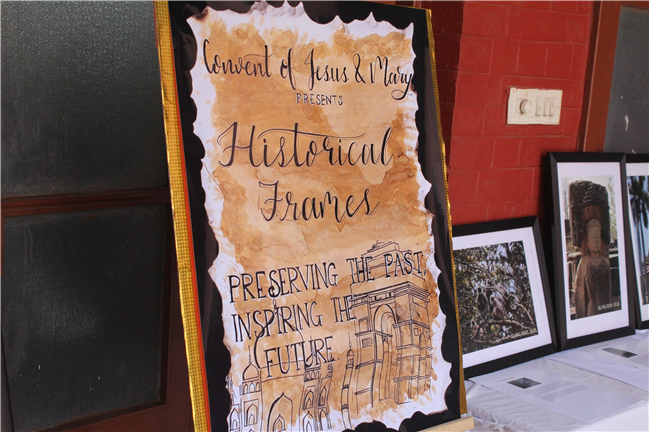 Convent of Jesus & Mary
PRESENTS
Historical
Frames
PRESERVING THE PAST,
INSPIRING THE
FUTURE